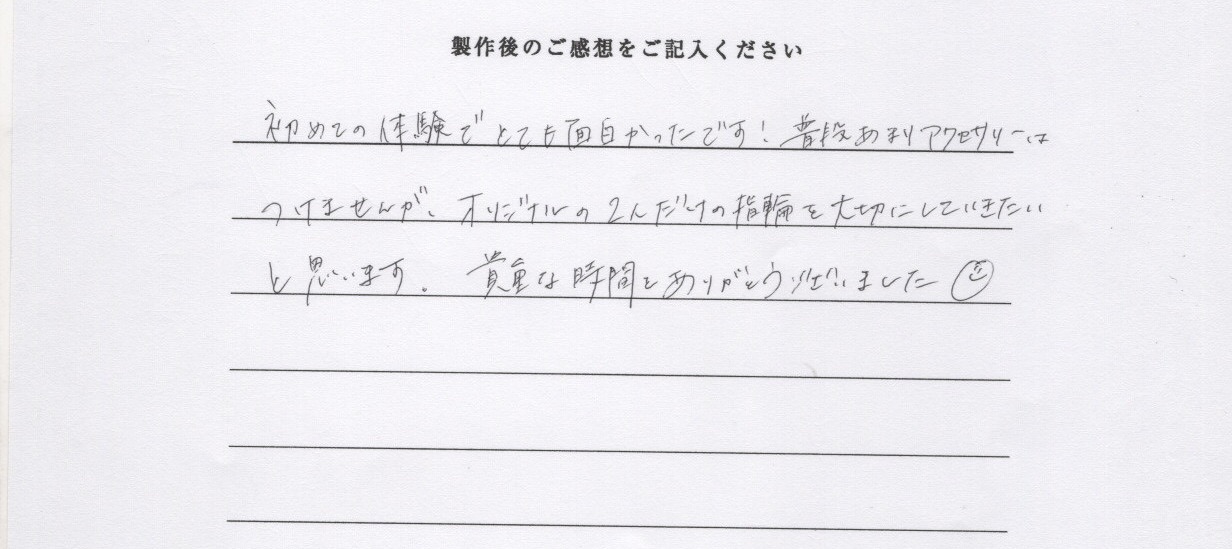 製作後のご感想をご記入ください
初めての体験でとても面白かったです！普段あまりアクセサリーは
つけませんが、オリジナルの2人だけの指輪を大切にしていきたい
と思います。貴重な時間をありがとうございました